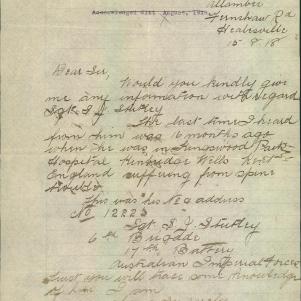 Acknowledged 21st August, 1918.
Allambi
Fernshaw Rd
Healesville
15-8-18
Dear Sir,
Would you kindly give
me any information with regard
Sgt S J
The last time I heard
from him was 16 months ago
when he was in Park
Hospital Tunbridge Wells Kent
England suffering from spine
This was his Reg address
No 12223
Sgt S J
6th Brigade
17th Battery
Australian Imperial Forces
Trust you will have some knowledge
of him I am